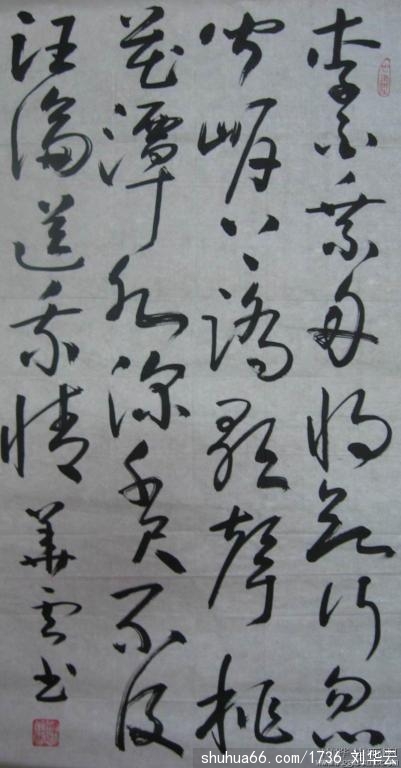 李白乘舟將欲行忽
聞岸上踏歌聲桃
花潭水深千尺不及
汪倫送我情
華雲书
shuhua66.com / 1736_刘华云